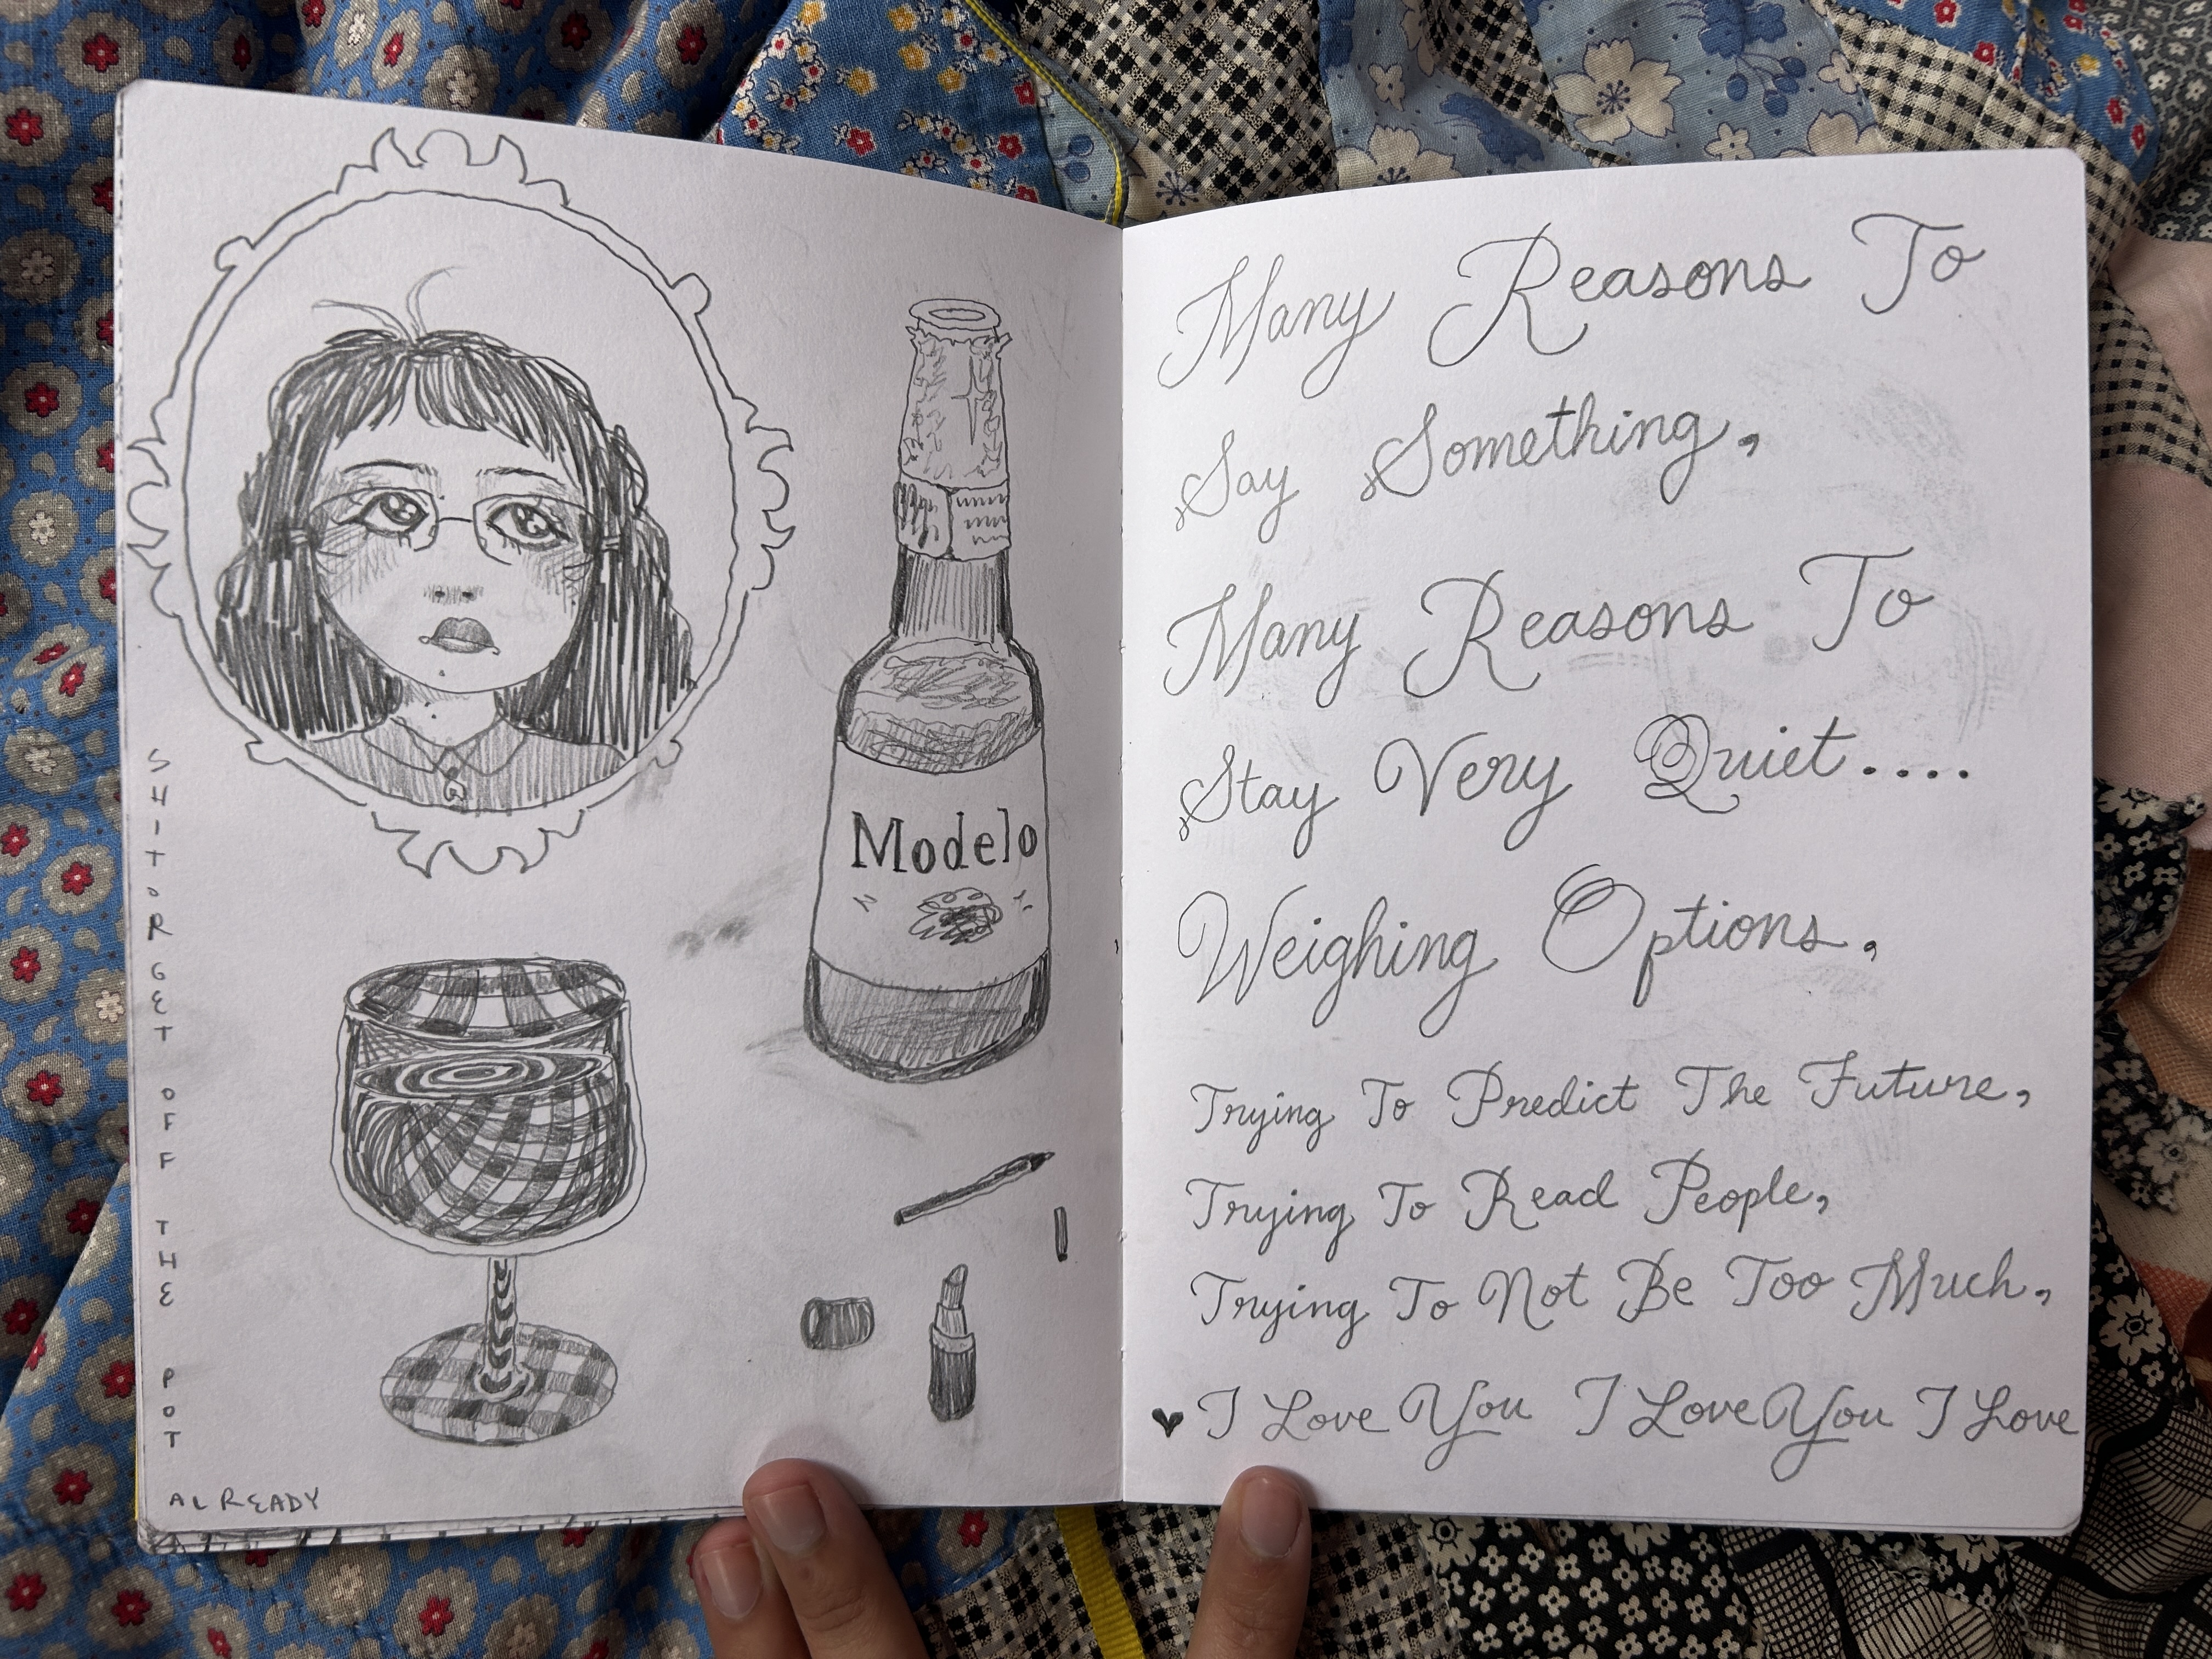 SHIT OR GET OFF THE POT
ALREADY
Modelo
Many Reasons To
Say Something,
Many Reasons To
Stay Very Quiet....
Weighing Options,
Trying To Predict The Future,
Trying To Read People,
Trying To Not Be Too Much,
♥ I Love You I Love You I Love